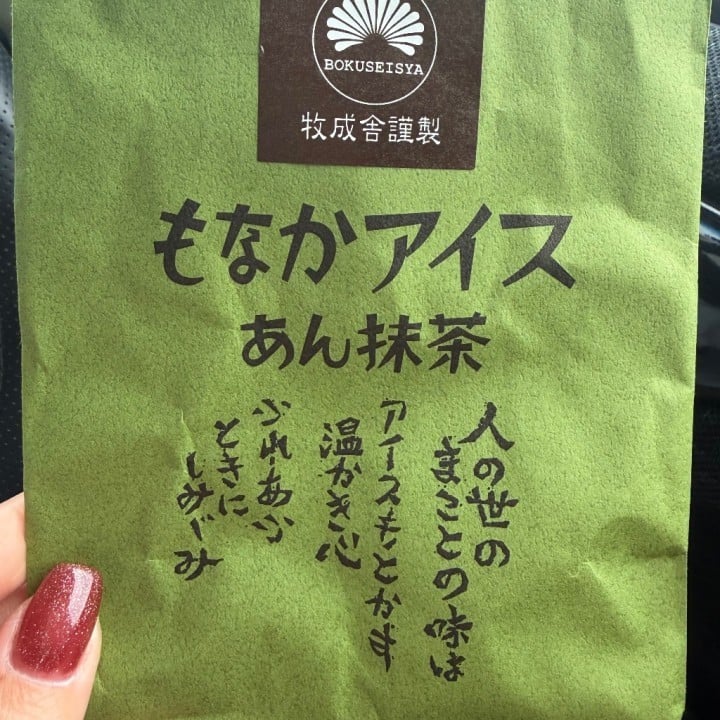 BOKUSEISYA
牧成舎謹製
もなかアイス
あん抹茶
人の世の
まことの味は
アイスもとかす
温かき心
ふれあふ
ときに
しみじみ